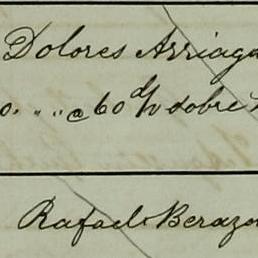 Dolores Arriaga
o. „ „ @ 60 d/v sobre
Rafael Beraza